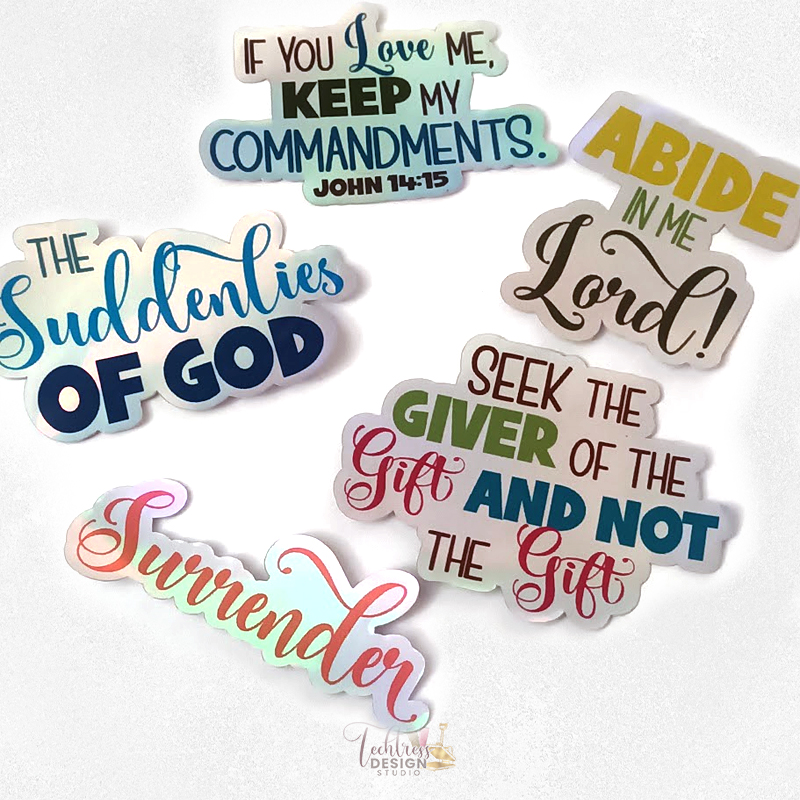 IF YOU Love ME,
KEEP MY
COMMANDMENTS.
JOHN 14:15
ABIDE
IN ME
Lord!
THE
Suddenlies
OF GOD
SEEK THE
GIVER OF THE
Gift AND NOT
THE Gift
Surrender
Techtress
DESIGN
STUDIO